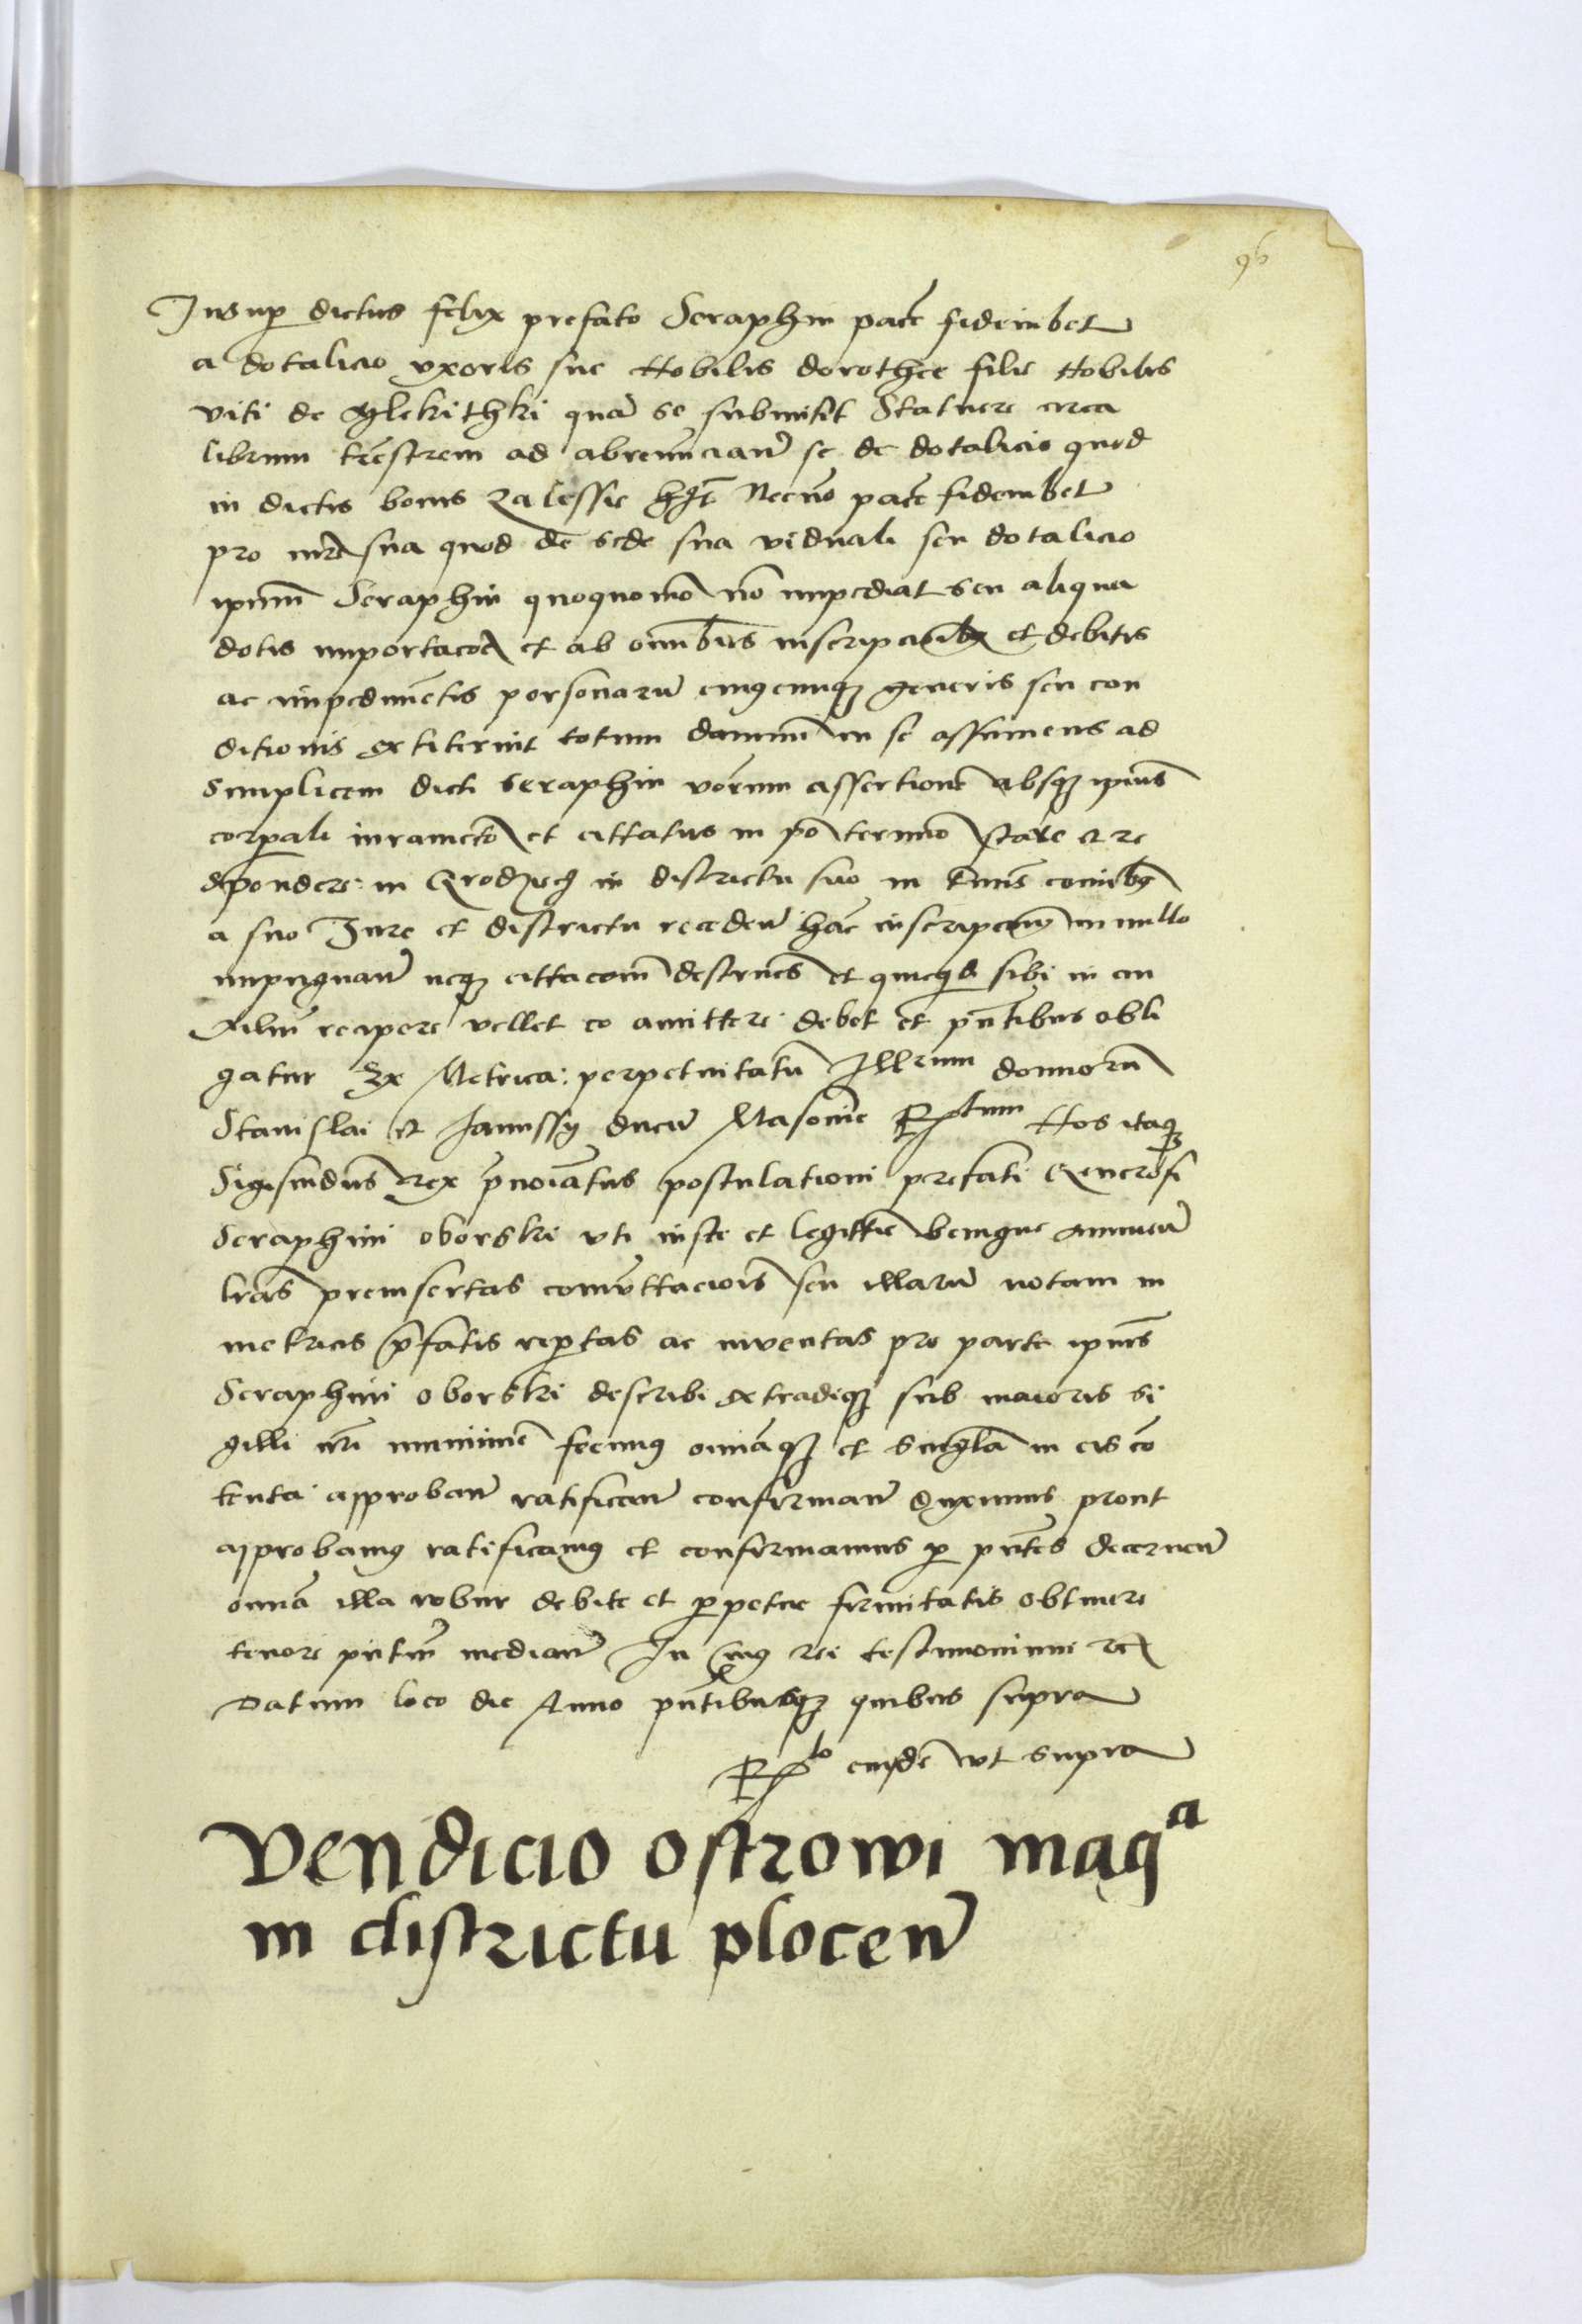 96
Insup dictus felix prefato Seraphin pace fideiubet
a dotalicio vxoris sue Nobilis dorothee filie Nobilis
viti de Glekithki quā se submisit Statuere circa
librum trēstrem ad abrenūciand se de dotalicio quod
in dictis bonis Zalessie hēt Necnō pacē fideiubet
pro mrē sua quod de sede sua viduali seu dotalicio
ipsum Seraphin quoquomo nō impediat seu aliqua
dotis importacōe et ab omnibus inscripcionibꝫ et debitis
ac impedimētis personarū cuiuscunqꝫ generis seu con
ditionis extiterint totum damnū in se assumens ad
simplicem dicti seraphin verbum assertionē absqꝫ ipius
corpali iuramēto et cittatus in po termino stare et re
spondere in Grodziecz in districtu suo in tmis
a suo Iure et districtu recedeñ hāc inscripcoīm in nullo
impugnañ neqꝫ cittacoīm destrues et quicqd sibi in au
xiliū recipere vellet eo amittere debet et pntibus obli
gatur Ex Metrica perpetuitatū Illrium dominorū
Stanislai et Janussy ducū Masovie Rptum Nos itaqꝫ
Sigismdus Rex pnoiatus postulationi prefati Generosi
Seraphini oborski vti iuste et legittie benigne annueñ
lras preinsertas comuttacionis seu illarū notam in
metricis pfatis reptas ac inventas pro parte ipius
Seraphini oborski describi extradiqꝫ sub maioris si
gilli nri munimine fecimus omiāqꝫ et singla in eis cō
tenta approbañ ratificañ confirmañ duximus prout
approbamus ratificamus et confirmamus p pntes decerneñ
omīa illa robur debite et ppetue firmitatis obtinere
tenore pntiū mediañ In cuius rei testimonium rē
Datum loco die Anno pntibusqꝫ quibus supra
Rlo eiusdē vt supra
Vendicio ostrowi magᵃ
in districtu plocen̄